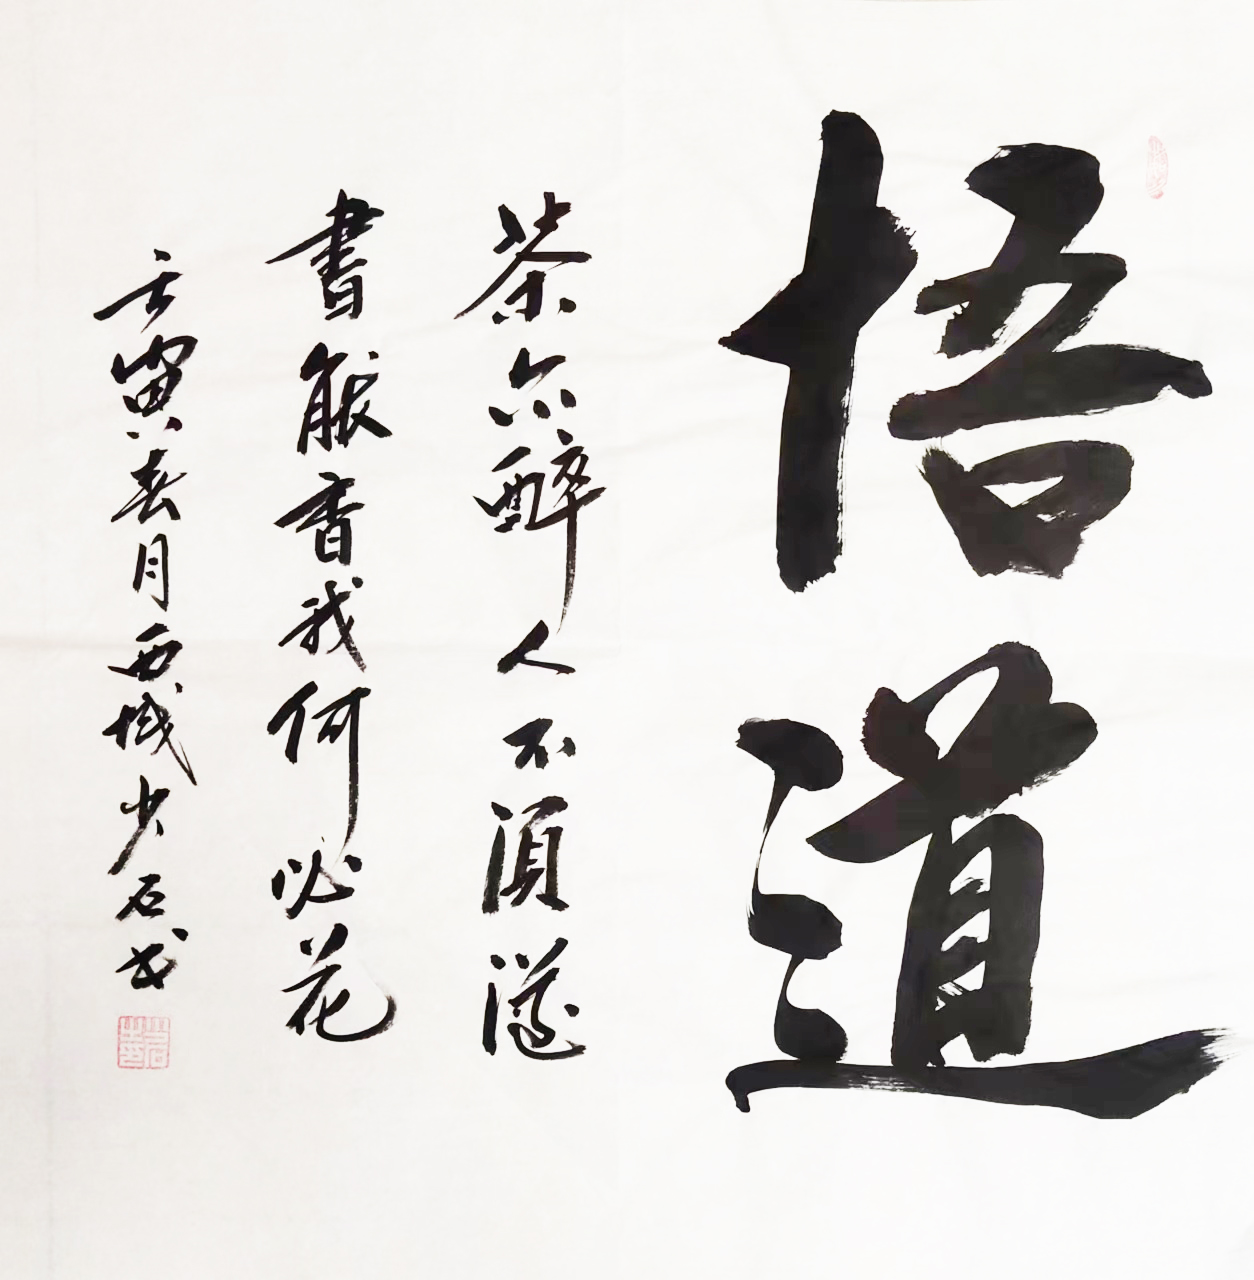 悟道
茶亦醉人不須酒
書能香我何必花
壬寅春月西域少石书